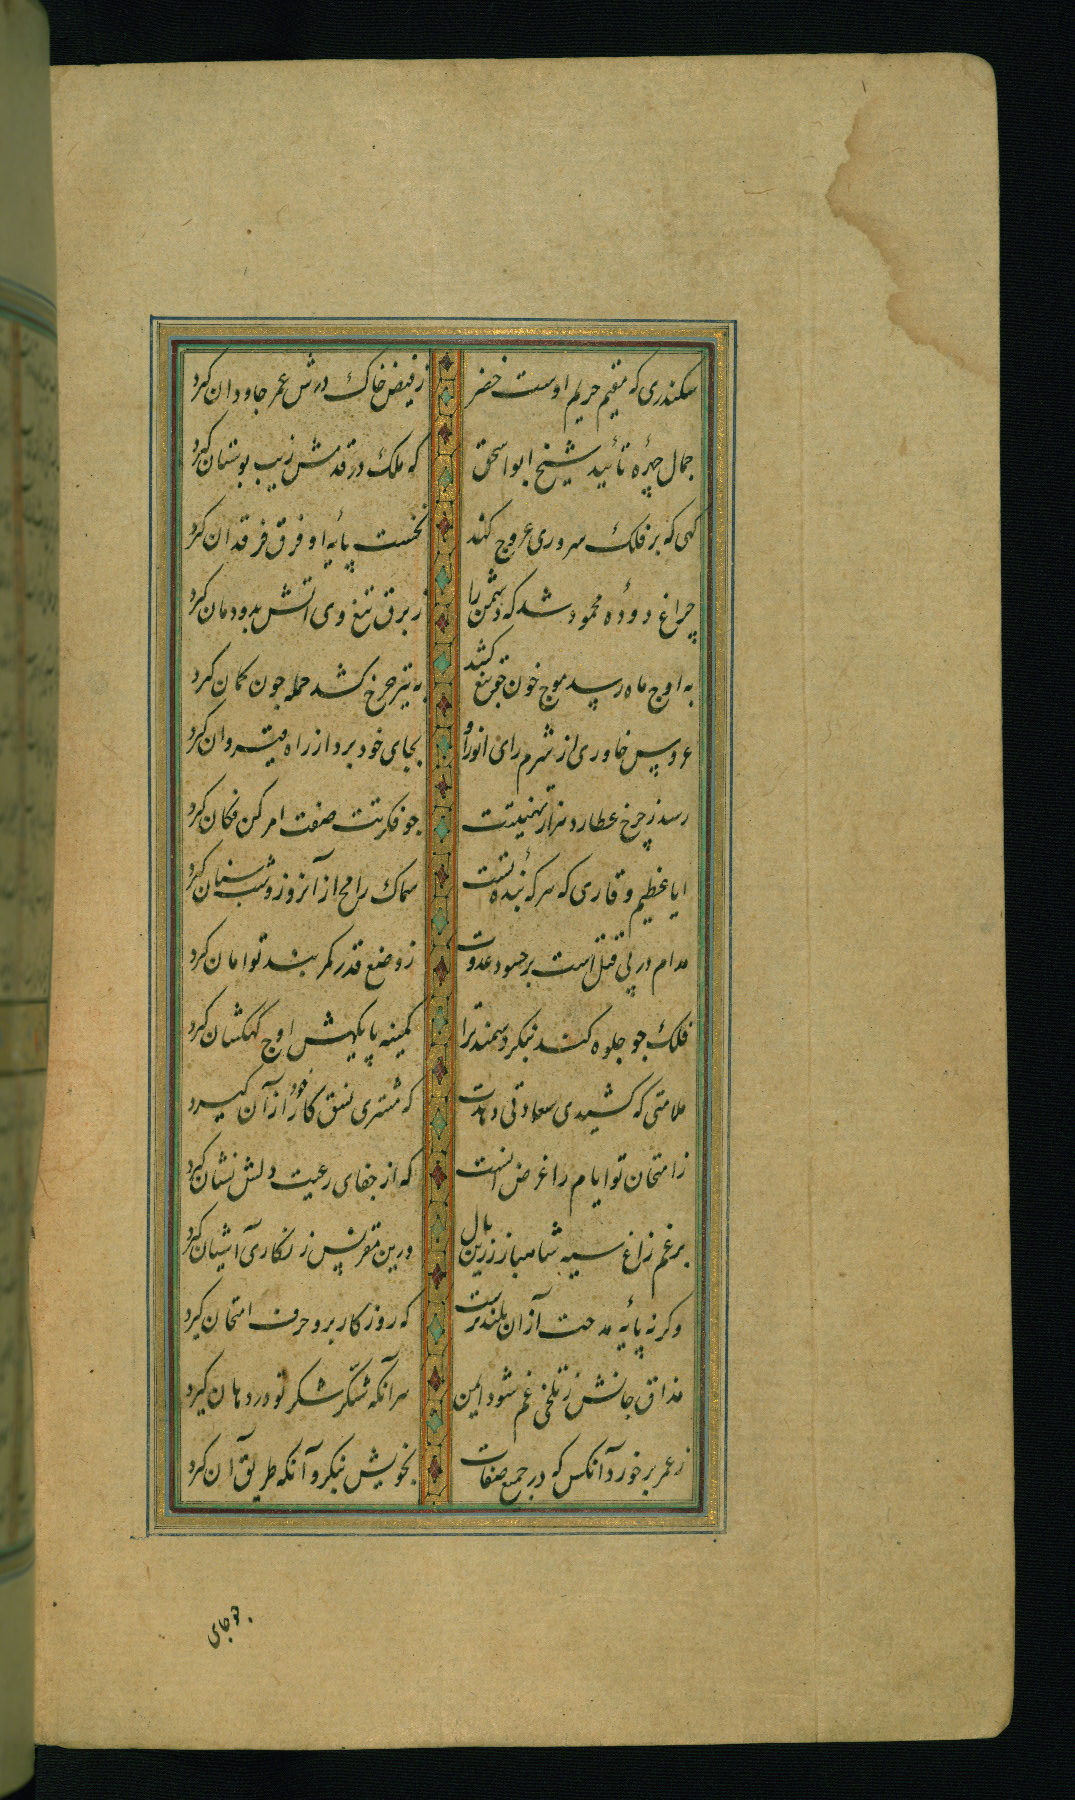 سکندری که مقیم حریم اوست خضر ز فیض خاک درش عمر جاودان گیرد
جمال چهرهٔ تأیید شیخ ابو اسحق که ملک در قدمش زیب بوستان گیرد
گهی که بر فلک سروری عروج کند نخست پایهٔ او فرق فرقدان گیرد
چراغ دودهٔ محمود شد که دشمن را ز برق تیغ وی اتش بدودمان گیرد
به اوج ماه رسد موج خون چو تیغ کشد به تیر چرخ کشد حمله چون کمان گیرد
عروس خاوری از شرم رای انور او بجای خود برد از راه قیروان گیرد
رسد ز چرخ عطارد هزار تهنیتت چو فکرتت صفت امر کن فکان گیرد
ایا عظیم وقاری که هر که بندهٔ تست سماک رامح از آن روز و شب سنان گیرد
مدام در پی قتل است بر حسود عدوت ز وضع قدر کمر بند توامان گیرد
فلک چو جلوه کند بنگرد سمند ترا کمینه پایگهش اوج کهکشان گیرد
ملامتی که کشیدی سعادتی دهدت که مشتری نسق کار خود از آن گیرد
ز امتحان تو ایام را غرض انست که از جفای رعیت دلش نشان گیرد
برغم زاغ سیه شاهباز زرین بال درین مقرنس زنکاری آشیان گیرد
وکرنه پایهٔ مدحت از آن بلندترست که روزکار برو حرف امتحان گیرد
مذاق جانش ز تلخی غم شود ایمن هر آنکه شکر شکر تو در دهان گیرد
ز عمر برخورد آنکس که در جمیع صفات بخویش بنکرد آنکه طریق آن گیرد
چو جای